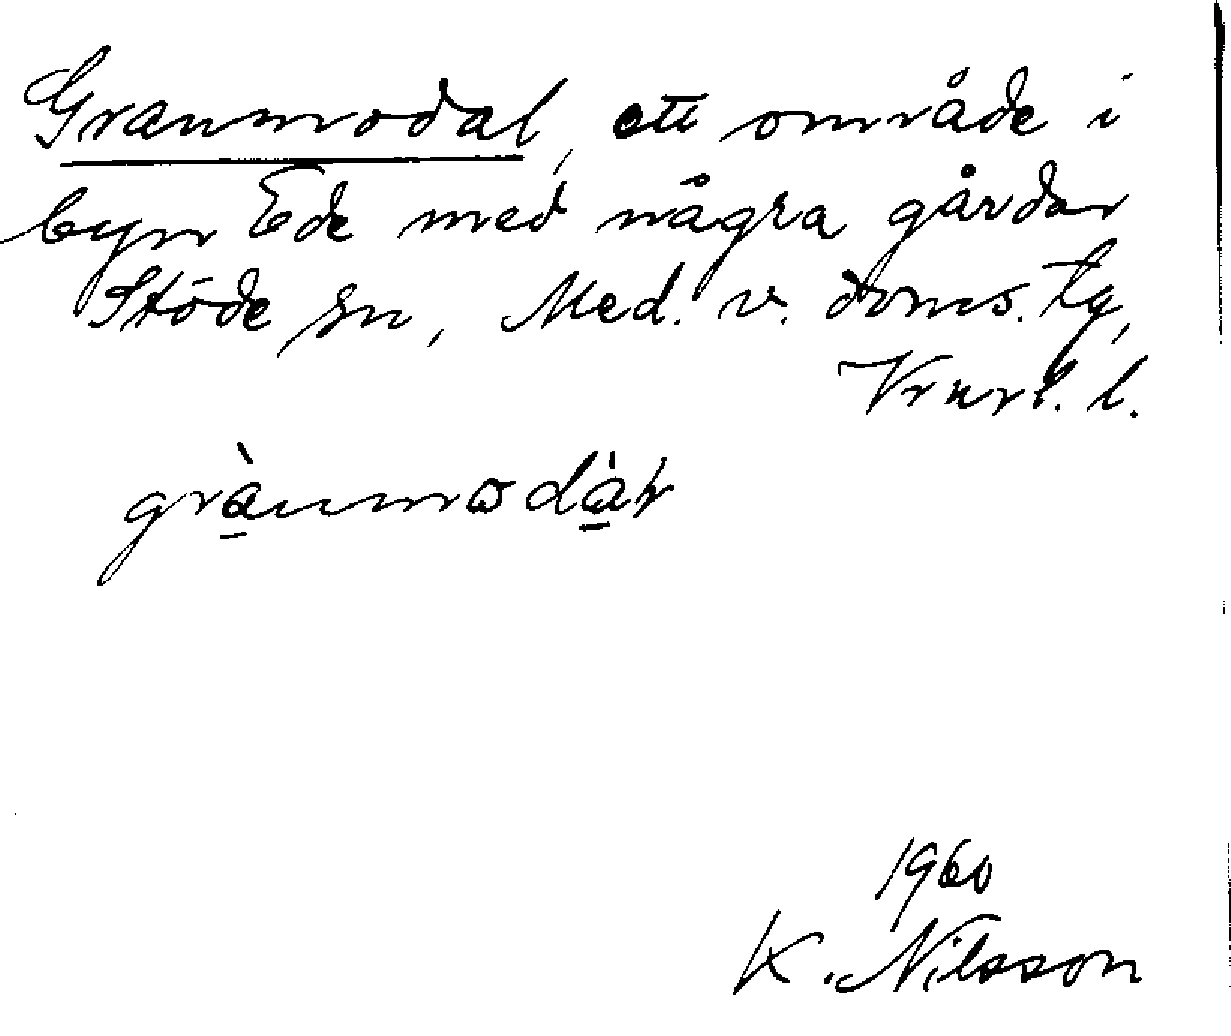 Granmodal, ett område i
byn Ede med några gårdar
Stöde sn, Med. v. doms. tg,
Vrnrl. l.
grànmωdàɫ
1960
K. Nilsson